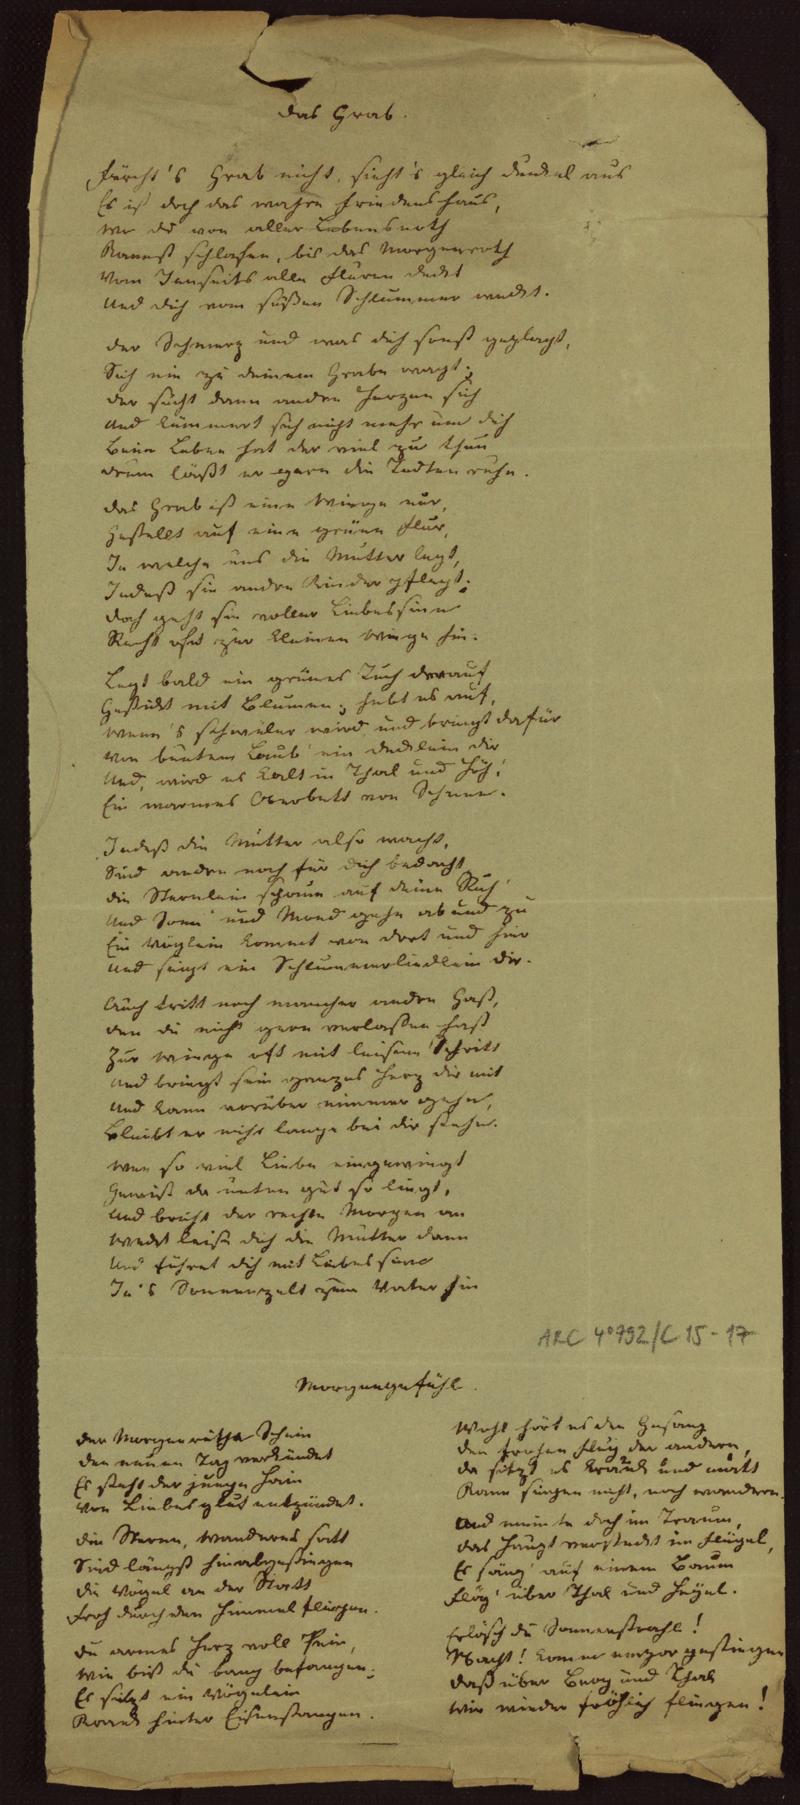 Das Grab.
Fürcht's Grab nicht, sieht's gleich dunkel aus
Es ist doch das wahre Friedenshaus,
Wo du von aller Lebensnoth
Kannst schlafen, bis das Morgenroth
Vom Jenseits alle Fluren deckt
Und dich vom süßen Schlummer weckt.
Der Schmerz und was dich sonst geplagt,
Sich nie zu deinem Grabe wagt;
Der sucht dann andre Herzen sich
Und kümmert sich nicht mehr um dich
Beim Leben hat der viel zu thun
Drum läßt er gern die Todten ruhn.
Das Grab ist eine Wiege nur,
Gestellt auf eine grüne Flur,
In welche uns die Mutter legt,
Indeß sie andre Kinder pflegt;
Doch geht sie voller Liebessinn
Recht oft zur kleinen Wiege hin.
Legt bald ein grünes Tuch darauf
Gestickt mit Blumen; hebt es auf,
Wenn's schwüler wird und bringt dafür
Von buntem Laub' ein Decklein dir
Und, wird es kalt in Thal und Höh',
Ein warmes Oberbett von Schnee.
Indeß die Mutter also wacht,
Sind andre noch für dich bedacht
Die Sternlein schaun auf deine Ruh'
Und Sonn' und Mond gehn ab und zu
Ein Vöglein kommt von dort und hier
Und singt ein Schlummerliedlein dir.
Auch tritt noch mancher andre Gast,
Den du nicht gern verlassen hast
Zur Wiege oft mit leisem Schritt
Und bringt sein ganzes Herz dir mit
Und kann vorüber nimmer gehn,
Bleibt er nicht lange bei dir stehn.
Wen so viel Liebe eingewiegt
Gewiß da unten gut so liegt,
Und bricht der rechte Morgen an
Weckt leise dich die Mutter dann
Und führet dich mit Liebessinn
In's Sonnenzelt zum Vater hin
ARC 4° 792/C 15-17
Morgengefühl.
Der Morgenröthe Schein
Den neuen Tag verkündet
Es steht der junge Hain
Von Liebesglut entzündet.
Die Sterne, Wanderns satt
Sind längst hinabgestiegen
Die Vögel an der Statt
Froh durch den Himmel fliegen.
Du armes Herz voll Pein,
Wie bist du bang befangen;
Es sitzt ein Vögelein
Krank hinter Eisenstangen.
Wohl hört es den Gesang
Den frohen Flug der andern,
Da sitzt es krank und matt
Kann singen nicht, noch wandern.
Und meinte doch im Traum,
Das Haupt versteckt im Flügel,
Es säng' auf einem Baum
Flög' über Thal und Hügel.
Erlösch du Sonnenstrahl!
Nacht! komm emporgestiegen
Daß über Berg und Thal
Wir wieder fröhlich fliegen!